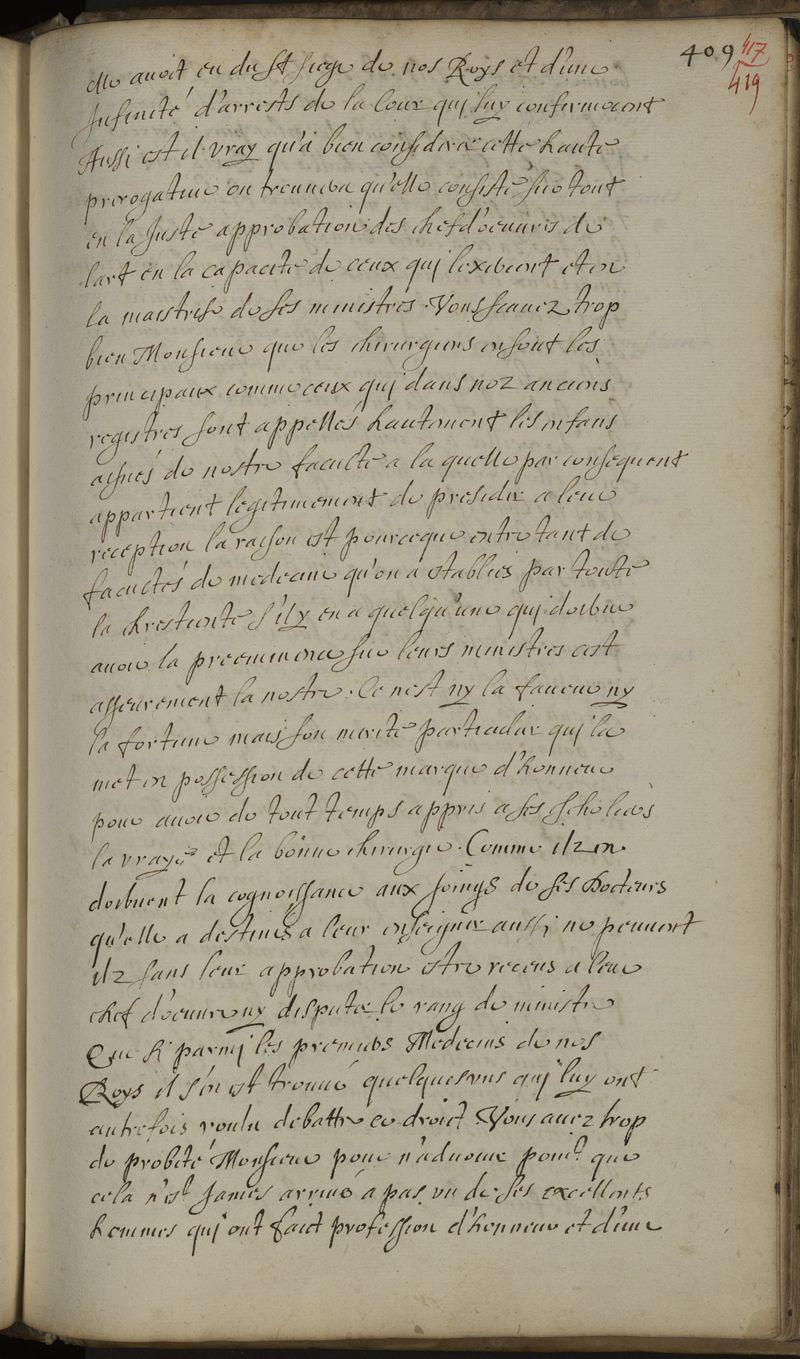 409 417
419
elle avoit eu du St siege de nos Roys et d'une
Infinité d'arrests de la Cour quj luy confirmoient
Aussi est il vray qu'a bien considerer cette haute
prerogative on treuvera qu'elle consiste sur tout
en la Juste approbation des chefs d'oeuvres de
l'art en la capacité de ceux quj l'exercent et en
la maistrise de ses ministres. Vous scavez trop
bien Monsieur que les chirurgiens en sont les
principaux comme ceux quj dans noz anciens
registres sont appellés hautement les enfans
aisnés de nostre faculté a la quelle par consequent
appartient legitimement de presider a leur
reception la raison est pourceque entre tant de
facultés de medecine qu'on a establies par toute
la chrestienté s'il y en a quelqu'une quj doibve
avoir la preeminence sur leurs ministres c'est
asseurement la nostre. Ce n'est ny la faveur ny
la fortune mais son merite particulier quj la
met en possession de cette marque d'honneur
pour avoir de tout temps appris a ses scholiers
la vraye et la bonne chirurgie. Comme ilz en
doibvent la cognoissance aux soings de ses Docteurs
qu'elle a destinés a leur enseigner aussj ne peuvent
ilz sans leur approbation estre receus a leur
chef d'oeuvre ny disputer le rang de ministre
Que si parmj les premiers Medecins de nos
Roys il s'en est trouvé quelques uns quj luy ont
autrefois voulu debattre ce droict Vous avez trop
de probité Monsieur pour n'advouer point que
cela n'est Jamais arrivé a pas un de ses excellents
hommes quj ont faict profession d'honneur et d'une